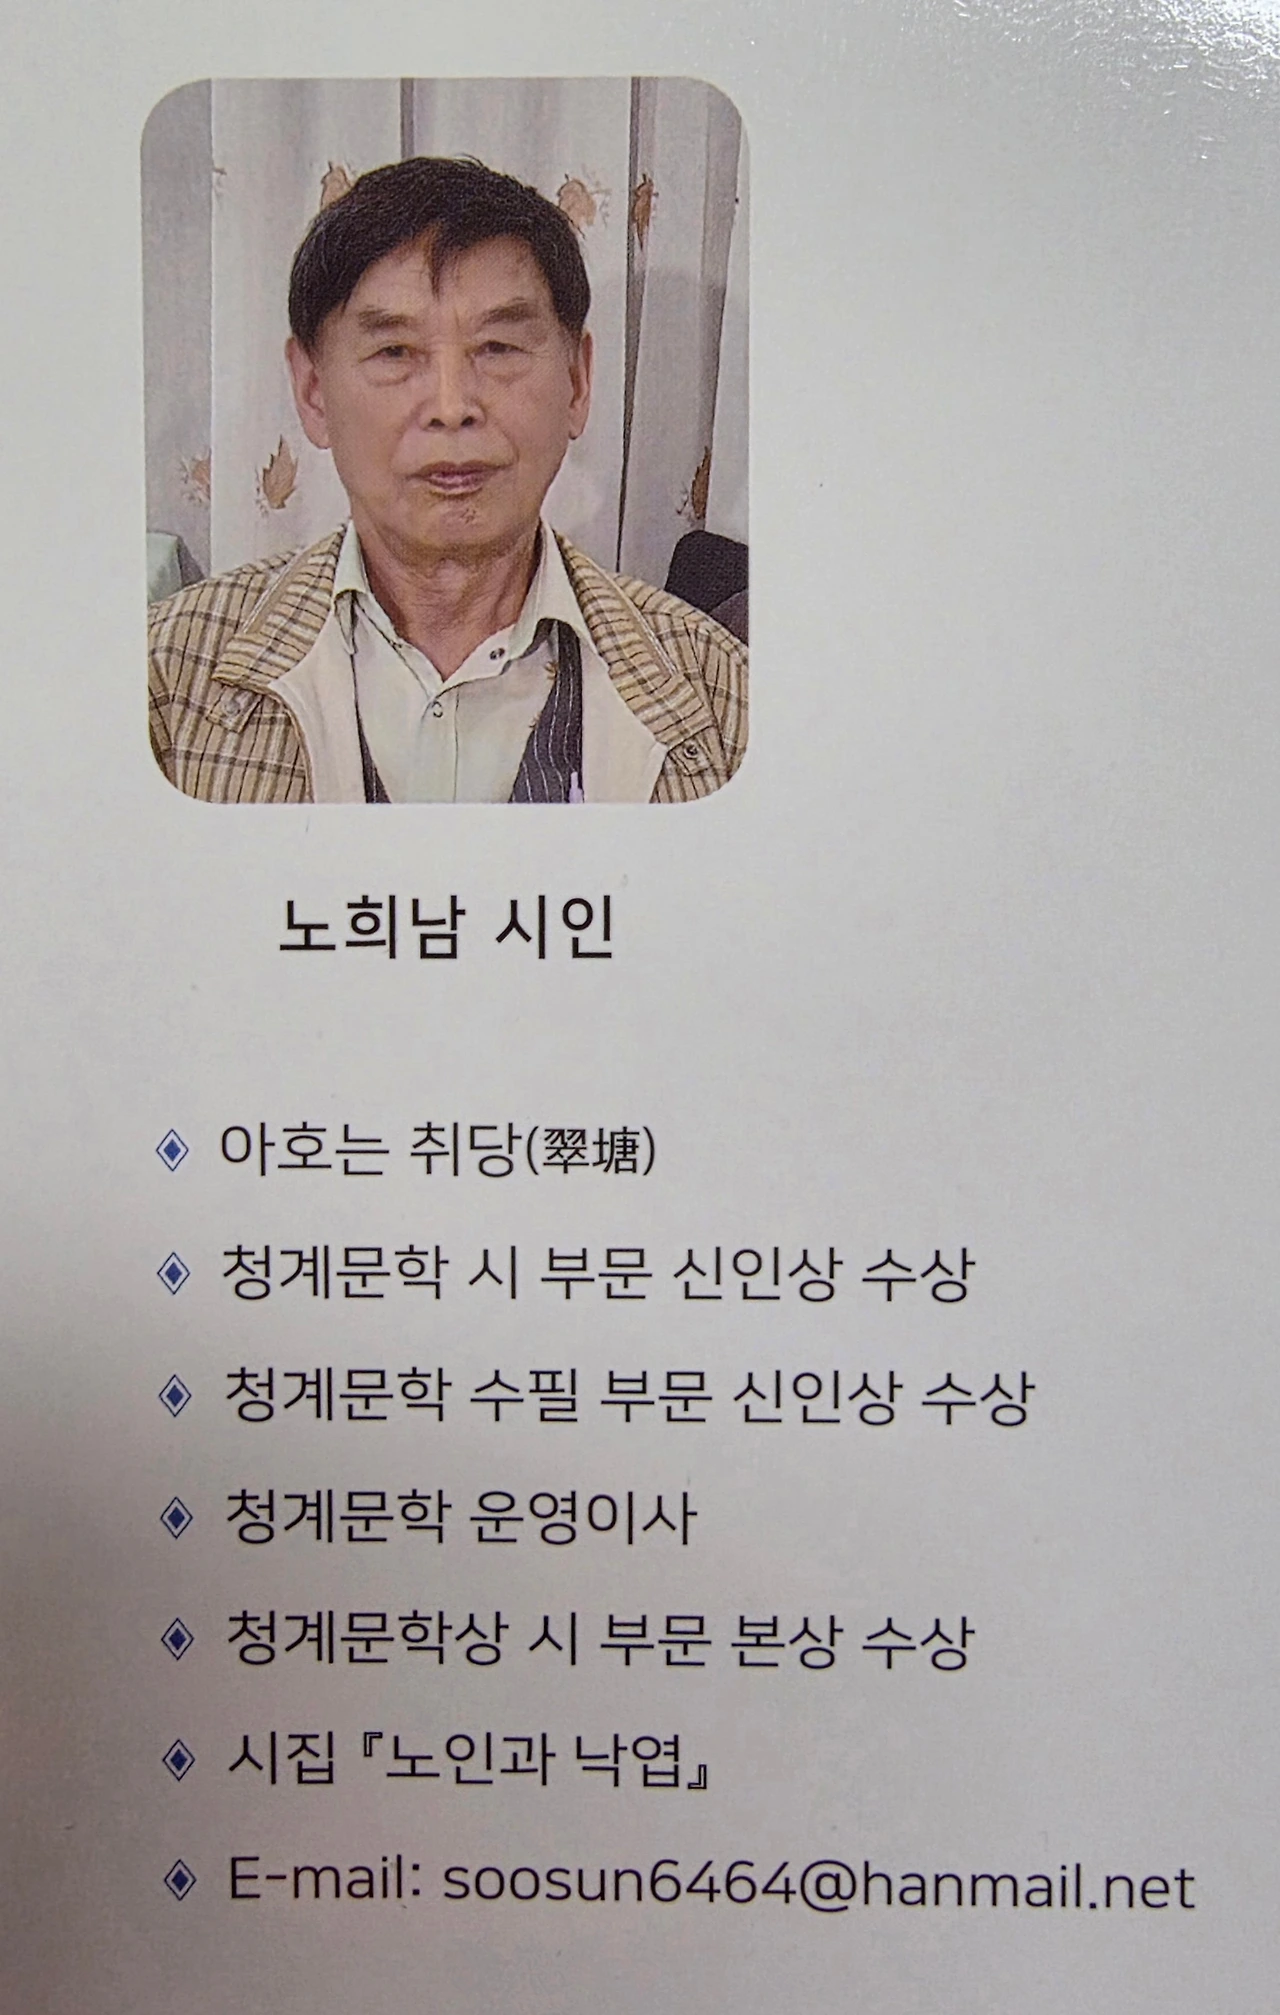 노희남 시인
아호는 취당(翠塘)
청계문학 시 부문 신인상 수상
청계문학 수필 부문 신인상 수상
청계문학 운영이사
청계문학상 시 부문 본상 수상
시집 『노인과 낙엽』
E-mail: soosun6464@hanmail.net